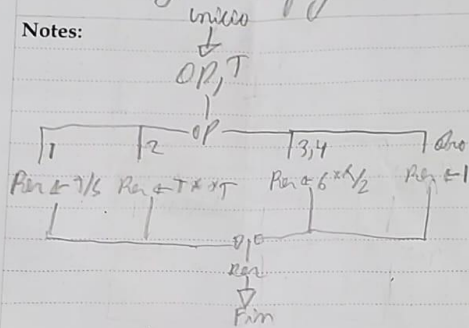 Notes:
inicio
OP, T
OP
1 2 3,4 Otro
Res ← T/5 Res ← T**T Res ← 6*T/2 Res ← 1
Res
Fin